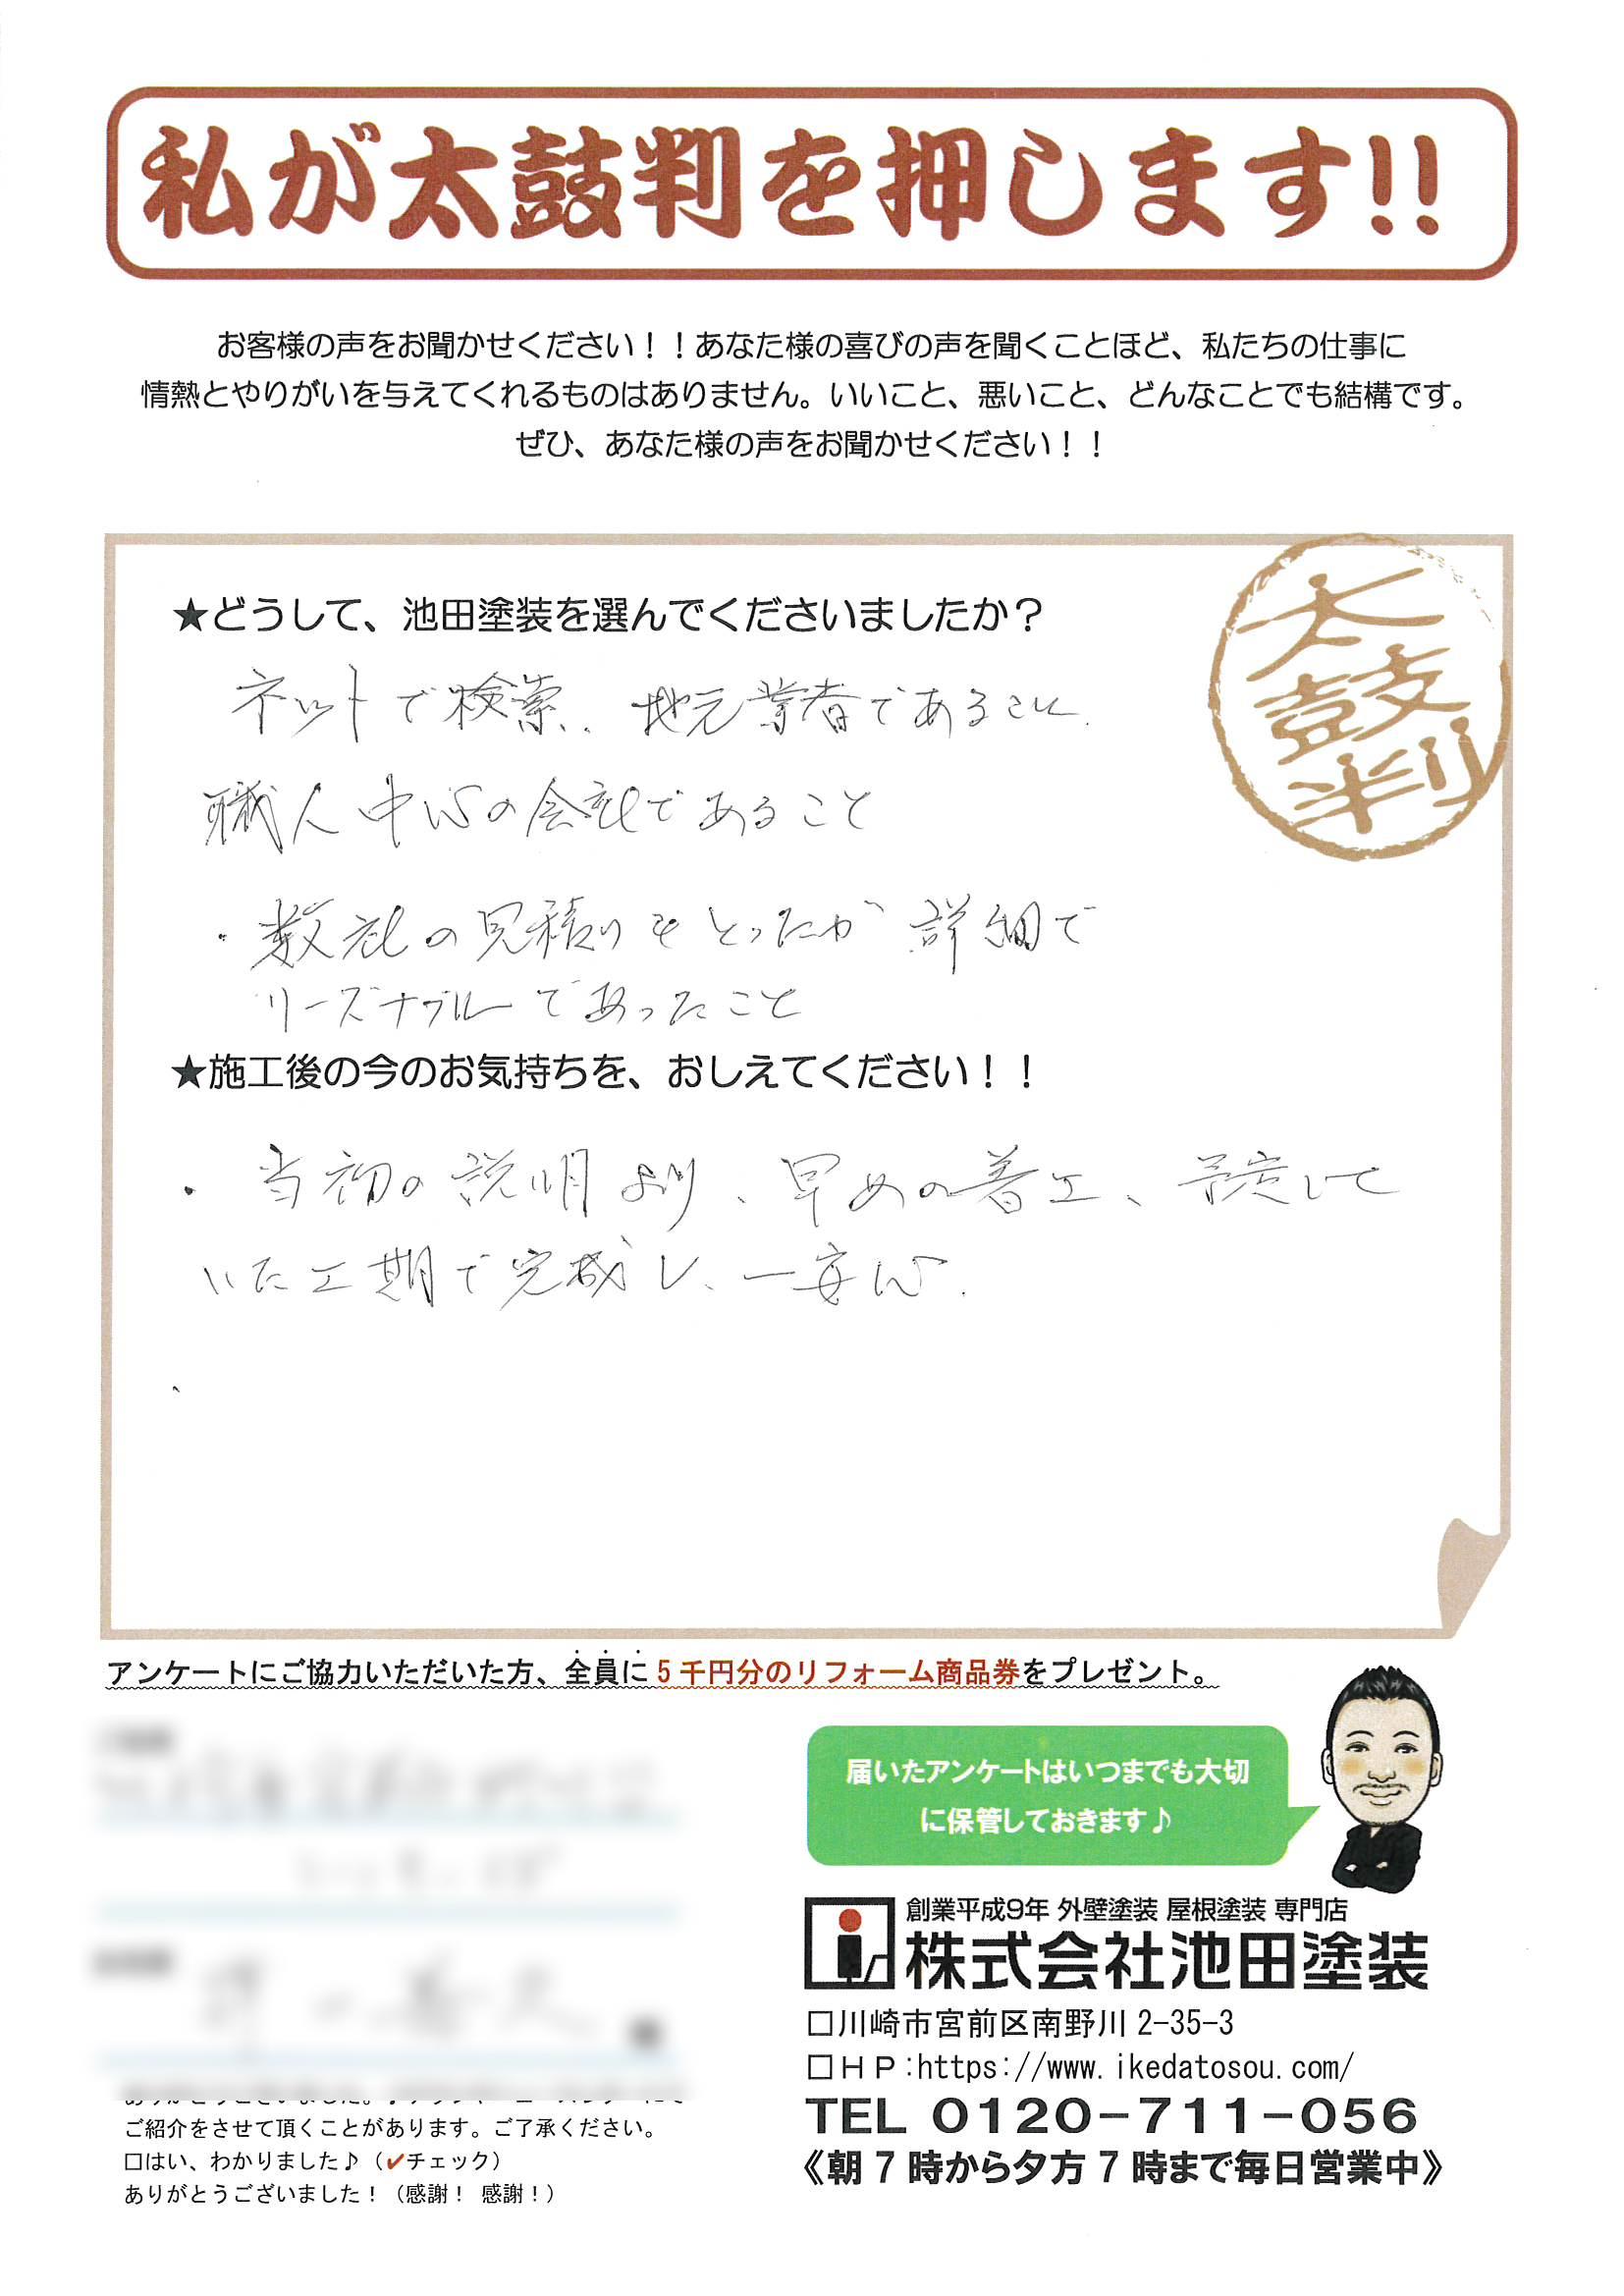 私が太鼓判を押します!!
お客様の声をお聞かせください！！あなた様の喜びの声を聞くことほど、私たちの仕事に
情熱とやりがいを与えてくれるものはありません。いいこと、悪いこと、どんなことでも結構です。
ぜひ、あなた様の声をお聞かせください！！
太
鼓
判
★どうして、池田塗装を選んでくださいましたか？
ネットで検索、地元業者であること、
職人中心の会社であること
・数社の見積りをとったが詳細で
リーズナブルであったこと
★施工後の今のお気持ちを、おしえてください！！
・当初の説明より、早めの着工、予定して
いた工期で完成し、一安心、
アンケートにご協力いただいた方、全員に5千円分のリフォーム商品券をプレゼント。
届いたアンケートはいつまでも大切
に保管しておきます♪
創業平成9年 外壁塗装 屋根塗装 専門店
株式会社池田塗装
□川崎市宮前区南野川 2-35-3
□ＨＰ:https://www.ikedatosou.com/
TEL 0120-711-056
《朝7時から夕方7時まで毎日営業中》
ご紹介をさせて頂くことがあります。ご了承ください。
□はい、わかりました♪（✔チェック）
ありがとうございました！（感謝！ 感謝！）